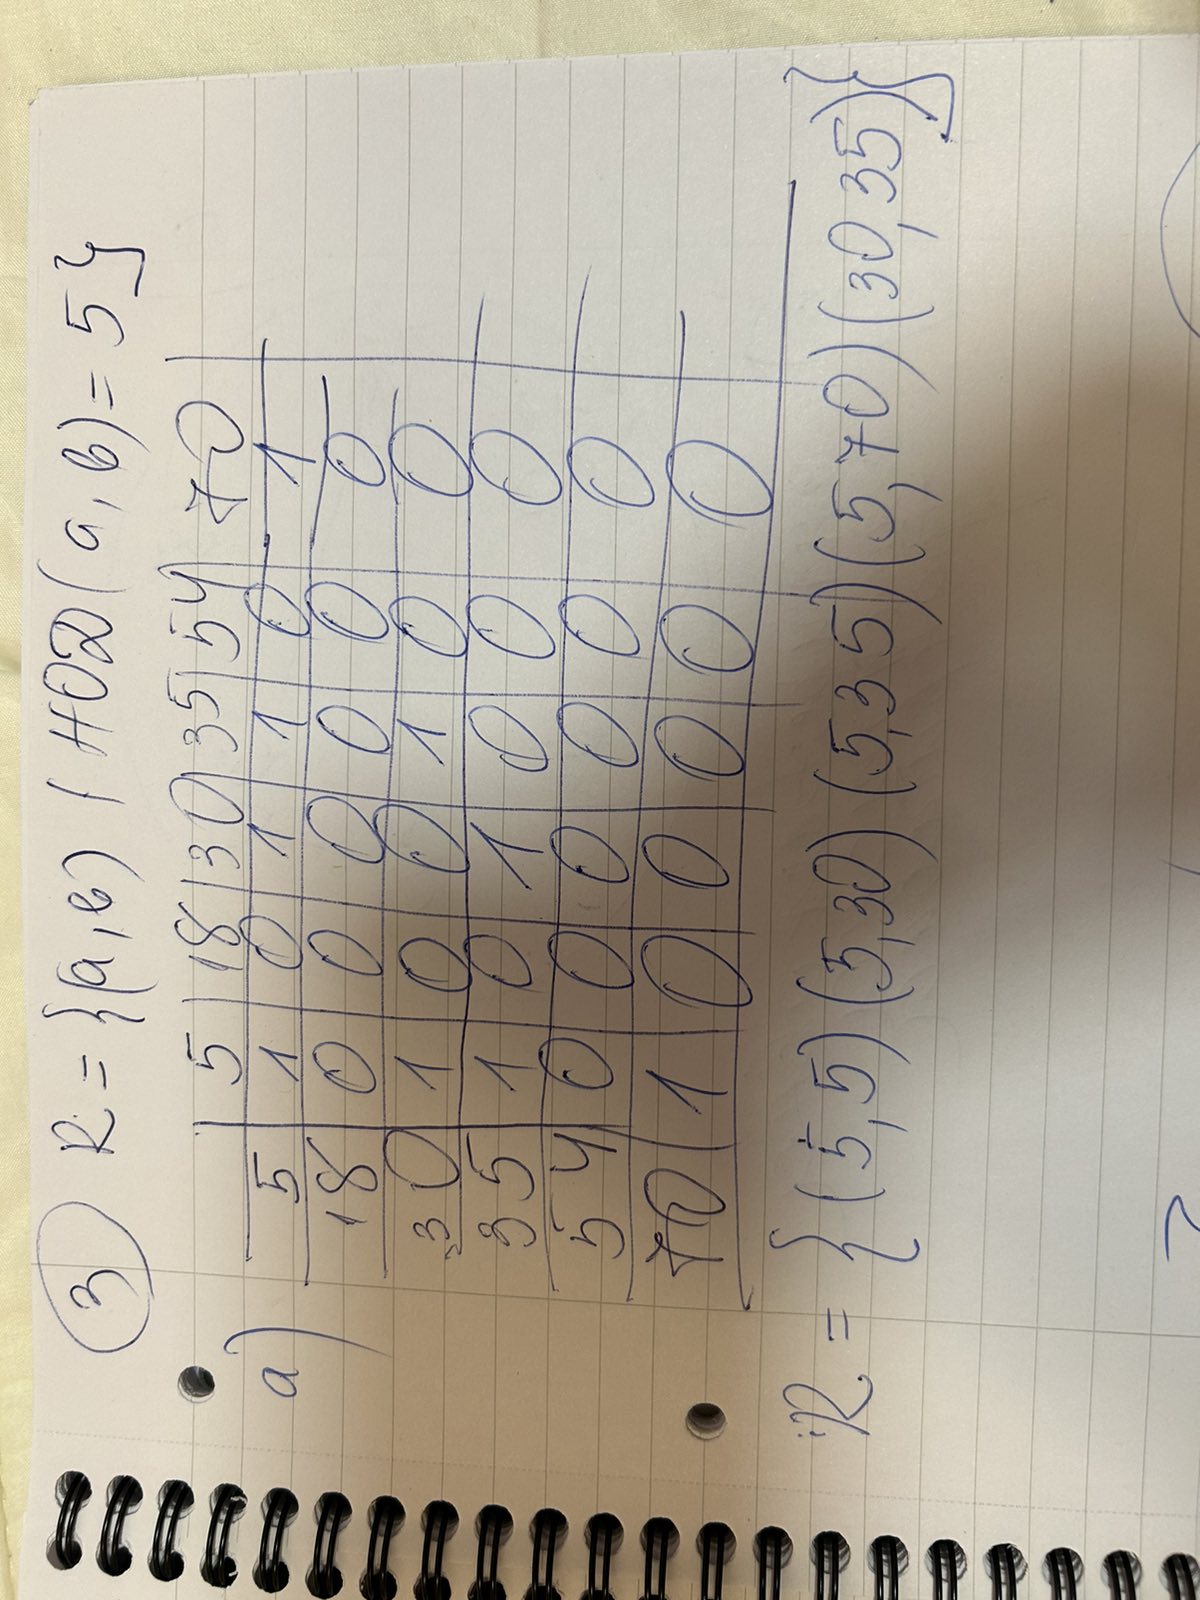 3 R = {(а, в) | НОД(а, в) = 5}
а)
5 18 30 35 54 70
5 1 0 1 1 0 1
18 0 0 0 0 0 0
30 1 0 0 1 0 0
35 1 0 1 0 0 0
54 0 0 0 0 0 0
70 1 0 0 0 0 0
R = {(5,5) (5,30) (5,35) (5,70) (30,35)}